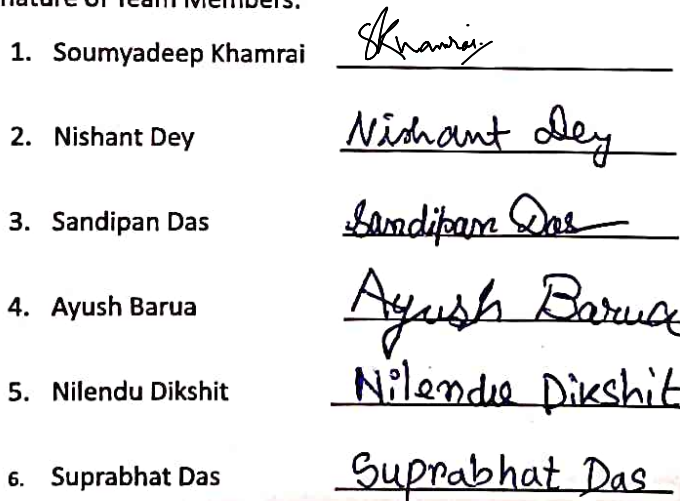 nature of Team Members:
1. Soumyadeep Khamrai SKhamrai
2. Nishant Dey Nishant Dey
3. Sandipan Das Sandipan Das
4. Ayush Barua Ayush Barua
5. Nilendu Dikshit Nilendu Dikshit
6. Suprabhat Das Suprabhat Das